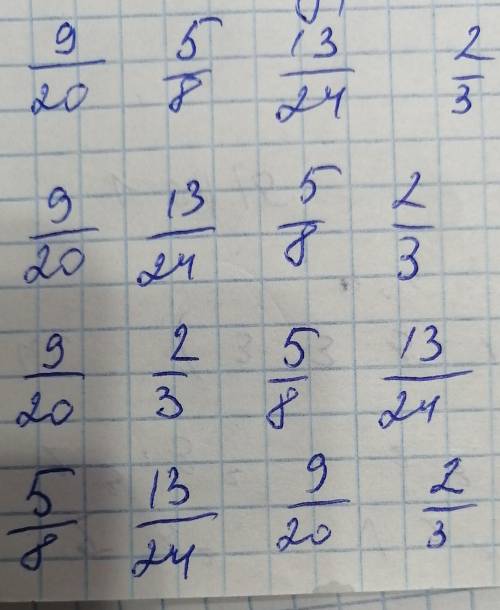 9/20 5/8 13/24 2/3
9/20 13/24 5/8 2/3
9/20 2/3 5/8 13/24
5/8 13/24 9/20 2/3